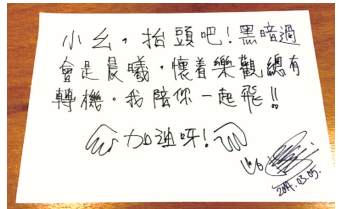 小幺，抬頭吧！黑暗過
會是晨曦，懷着樂觀總有
轉機。我陪你一起飛！！
加油呀！
2014.03.05.